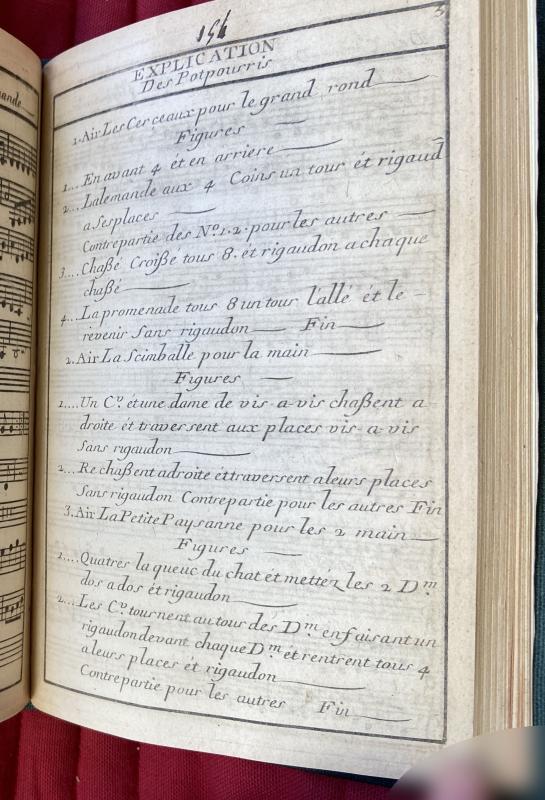 ande
194
3
EXPLICATION
Des Potpourris
1. Air Les Cerçeaux pour le grand rond
Figures
1... En avant 4 ét en arriere
2... Lalemande aux 4 Coins un tour ét rigaud
a Ses places
Contrepartie des Nº 1. 2. pour les autres
3... Chaßé Croißé tous 8. et rigaudon a chaque
chaßé
4... La promenade tous 8 un tour l'allé ét le
revenir Sans rigaudon Fin
2. Air La Scimballe pour la main
Figures
1.... Un C.r et une dame de vis-a-vis chaßent a
droite ét traversent aux places vis-a-vis
Sans rigaudon
2... Re chaßent a droite ét traversent a leurs places
Sans rigaudon Contrepartie pour les autres Fin
3. Air La Petite Paysanne pour les 2 main
Figures
1.... Quatres la queue du chat ét mettéz les 2 D.m
dos a dos ét rigaudon
2... Les C.r tournent au tour des D.m en faisant un
rigaudon devant chaque D.m ét rentrent tous 4
a leurs places ét rigaudon
Contrepartie pour les autres Fin